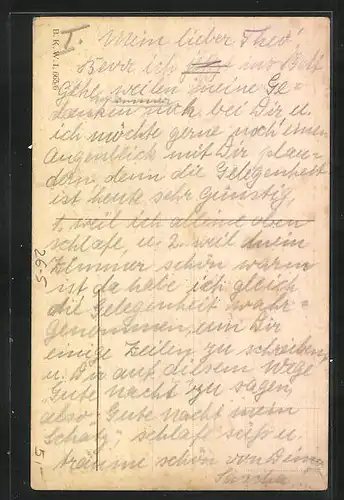 B.K.W.I. 663-6
I.
Mein lieber Theo!
Bevor ich ins Bett
Gehe, weilen meine Ge-
danken noch immer bei Dir u.
ich möchte gerne noch einen
Augenblick mit Dir plau-
dern, denn die Gelegenheit
ist heute sehr günstig,
1. weil ich alleine oben
schlafe, u. 2. weil mein
Zimmer schön warm
ist da habe ich gleich
die Gelegenheit wahr-
genommen, um Dir
einige Zeilen zu schreiben
u. Dir auf diesem Wege
"Gute Nacht" zu sagen,
also "Gute Nacht mein
Schatz", schlaf süß u.
träume schön von Deiner
26-5
5,-